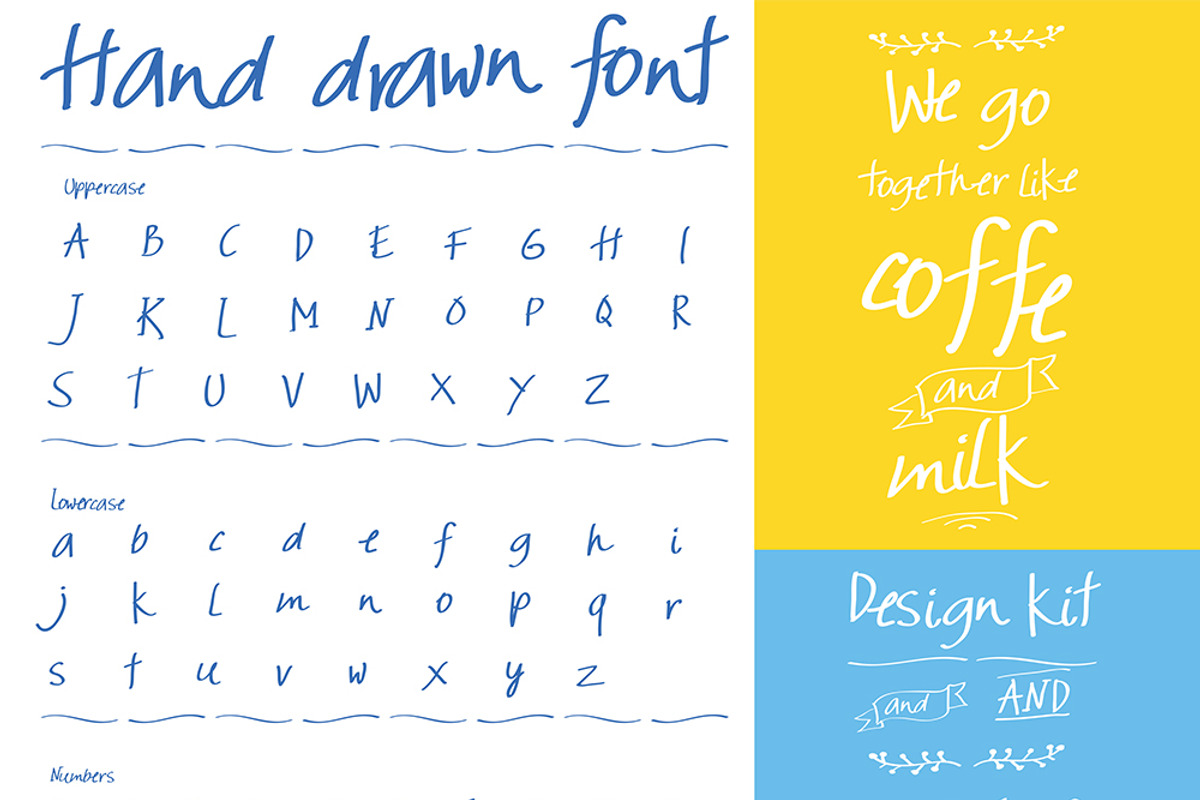 Hand drawn font
Uppercase
A B C D E F G H I
J K L M N O P Q R
S T U V W X Y Z
Lowercase
a b c d e f g h i
j k l m n o p q r
s t u v w x y z
Numbers
We go
together like
coffe
and
milk
Design kit
and AND